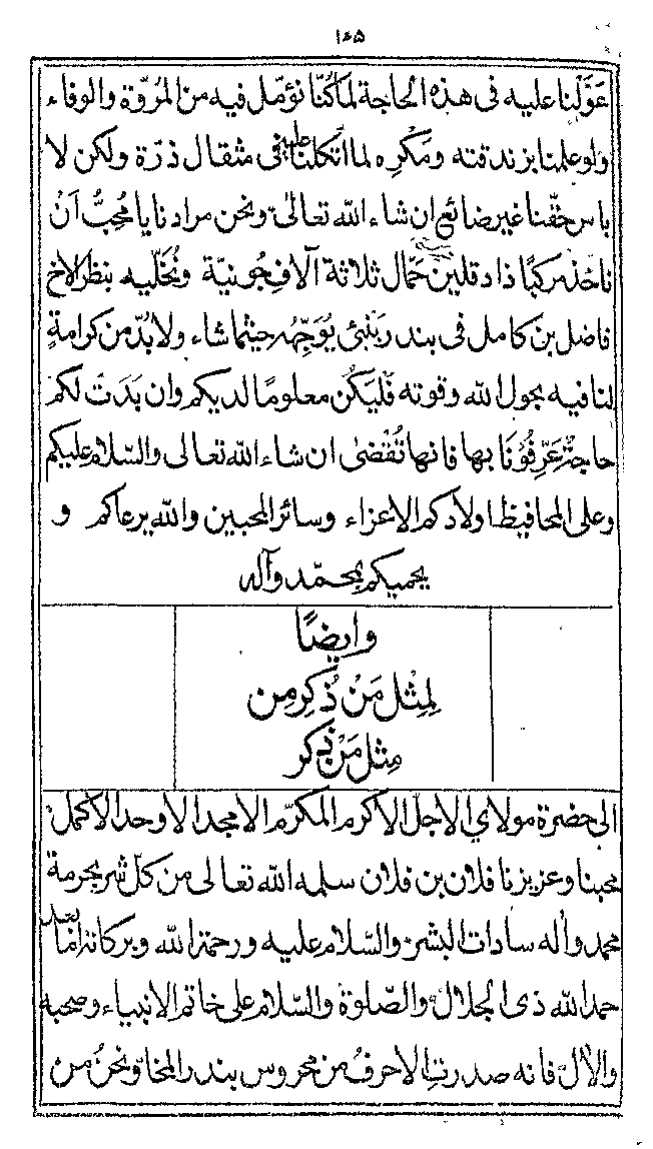 ١٥٥
عَوَّلْنا عليه فى هذه الحاجة لما كُنّا نؤمّل فيه من المُرُوّة والوفاء
ولو علمنا بزندقته ومَكْرِه لما اتّكلنا عليه فى مثقال ذرّة ولكن لا
باس حقّنا غير ضائع ان شاء الله تعالى ونحن مرادنا يا مُحِبُّ اَنْ
ناخذ مركبًا ذا دقلين حَمّال ثلاثة آلافِ جُونيّة ونُخَلّيه بنظر الاخ
فاضل بن كامل فى بندر بَنْبَئ يُوَجِّهه حيثما شاء ولا بُدّ من كرامةٍ
لنا فيه بحول الله وقوته فَليَكُن معلومًا لديكم وان بَدَتْ لكم
حاجةٌ عَرِّفُوْنَا بها فانها تُقْضىٰ ان شاء الله تعالى والسّلام عليكم
وعلى المحافيظ اولادكم الاعزاء وسائر المحبين والله يرعاكم و
يحميكم بمحمّد وآله
وايضًا
لِمِثْل مَنْ ذُكِر مِن
مِثل مَنْ ذُكر
الى حضرة مولاي الاجلّ الاكرم المكرّم الامجد الاوحد الاكمل
محبنا وعزيزنا فلان بن فلان سلمه الله تعالى من كل شر بحرمة
محمد وأله سادات البشر والسّلام عليه ورحمة الله وبركاته امّا بعد
حمد الله ذى الجلال والصّلوة والسّلام على خاتم الانبياء وصحبه
والأل فانه صدرت الاحرف من محروس بندر المخا ونحن من